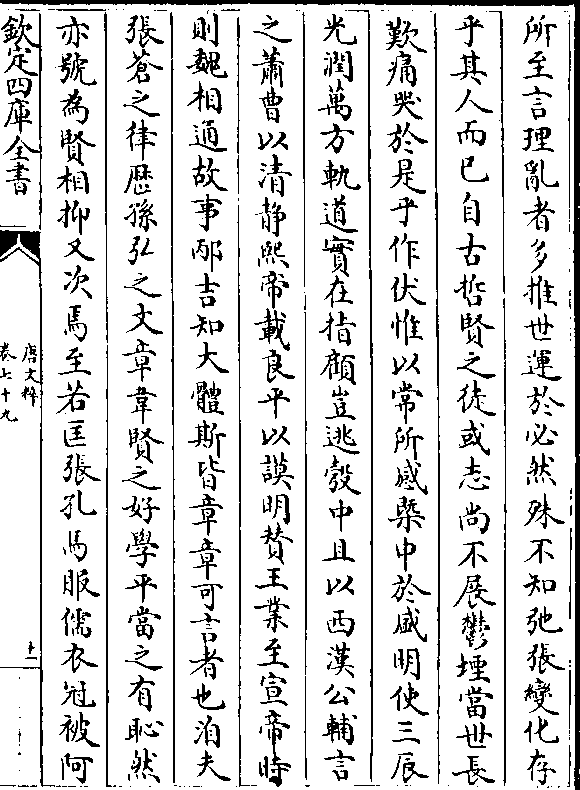 所至言理亂者多推世運於必然殊不知弛張變化存
乎其人而已自古哲賢之徒或志尚不展鬱堙當世長
歎痛哭於是乎作伏惟以常所感槩中於盛明使三辰
光潤萬方軌道實在指顧豈逃彀中且以西漢公輔言
之蕭曹以清静熙帝載良平以謨明賛王業至宣帝時
則魏相通故事邴吉知大體斯皆章章可言者也洎夫
張蒼之律歴孫弘之文章韋賢之好學平當之有恥然
亦號為賢相抑又次焉至若匡張孔馬服儒衣冠被阿
欽定四庫全書
唐文粹
卷七十九
十一